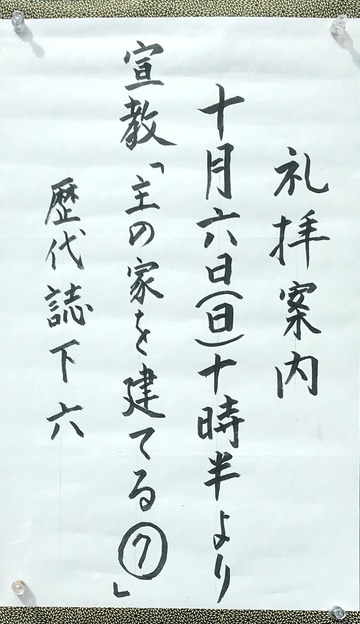 礼拝案内
十月六日(日)十時半より
宣教「主の家を建てる⑦」
歴代誌下六